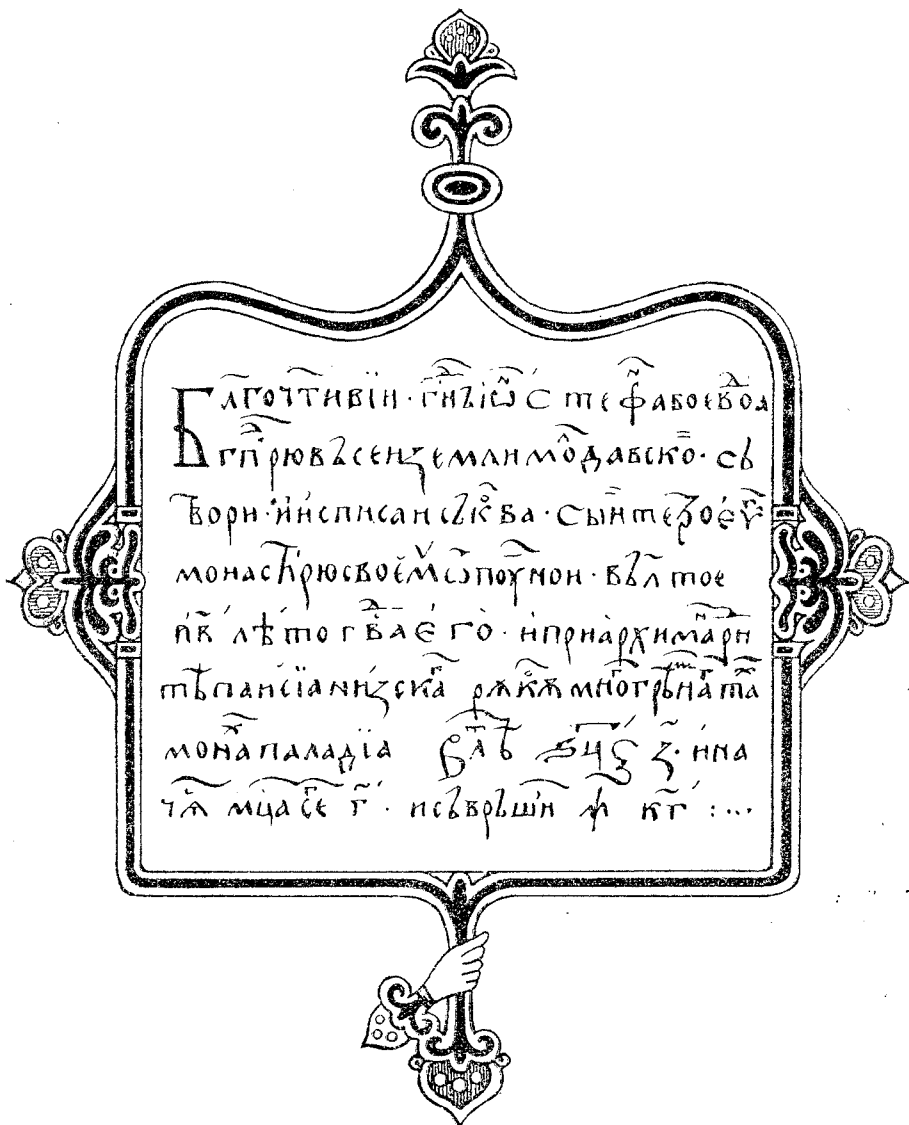 Бл҃гочтивїи · гⷣ҇нъ іѡ҃ⷩ Стефⷩ҇а воевⷪ҇ⷣа
гпⷣ҇рю въсеи земли моⷧ҇давскѡ · съ
твори · и исписа съкⷪ҇ва · сьи тетрⷪ҇ое ѵⷢ҇
монастⷩ҇рю своемⷹ҇ ѿ поуⷮ҇нои · въ л҃тое
л҃в лѣто гⷭ҇в҃а его · и при архимаⷩ҇ⷣри
тѣ паисїа низскаⷢ҇ рѫкⷪ҇ѫ многогрⷮ҇ѣнаⷢ҇ таⷯ
монⷯ҇а паладїа
чѧⷤ мⷭ҇ца сеⷫ҇ г҃ · и съвръши м҃р к҃г :···